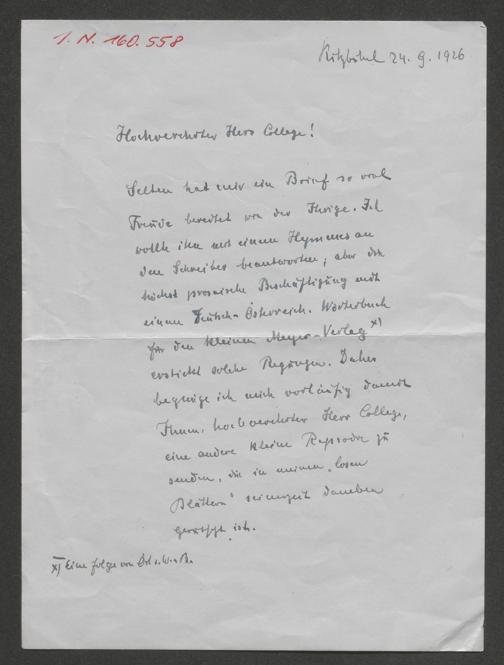 I. N. 160.558
Kitzbühel 24. 9. 1926
Hochverehrter Herr College!
Selten hat mir ein Brief so viel
Freude bereitet wie der Ihrige. Ich
wollte ihn mit einem Hymnus an
den Schreiber beantworten, aber die
höchst prosaische Beschäftigung mit
einem Deutsch-Österreich. Wörterbuch
für den kleinen Meyer-Verlag x)
erstickt solche Regungen. Daher
begnüge ich mich vorläufig damit
Ihnen, hochverehrter Herr College,
eine andere kleine Rhapsodie zu
senden, die in meinen „losen
Blättern" seinerzeit daneben
gerutscht ist.
x) Eine Folge von